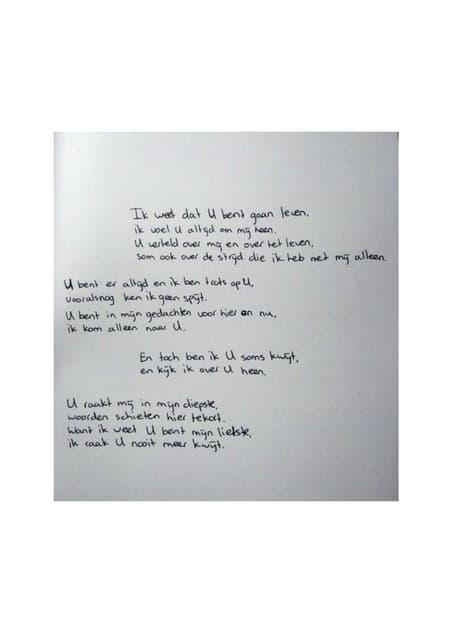 Ik weet dat U bent gaan leven,
ik voel U altijd om mij heen.
U verteld over mij en over het leven,
Som ook over de strijd die ik heb met mij alleen.
U bent er altijd en ik ben trots op U,
vooralsnog ken ik geen spijt.
U bent in mijn gedachten voor hier en nu,
ik kom alleen naar U.
En toch ben ik U soms kwijt,
en kijk ik over U heen.
U raakt mij in mijn diepste,
woorden schieten hier tekort.
Want ik weet U bent mijn liefste,
ik raak U nooit meer kwijt.